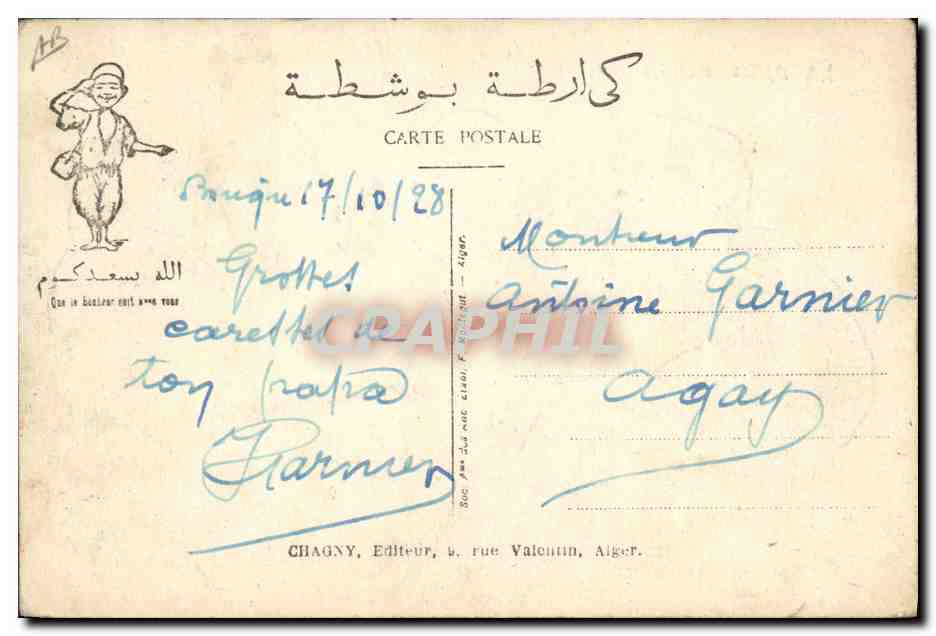 AB
كارطة بوشطة
CARTE POSTALE
17/10/28
Grosses
caresses de
ton papa
Garnier
الله يسعدكوم
Que le bonheur soit avec vous
Monsieur
Antoine Garnier
Agay
CPAPHIL
Alger.
CHAGNY, Editeur, 9, rue Valentin, Alger.